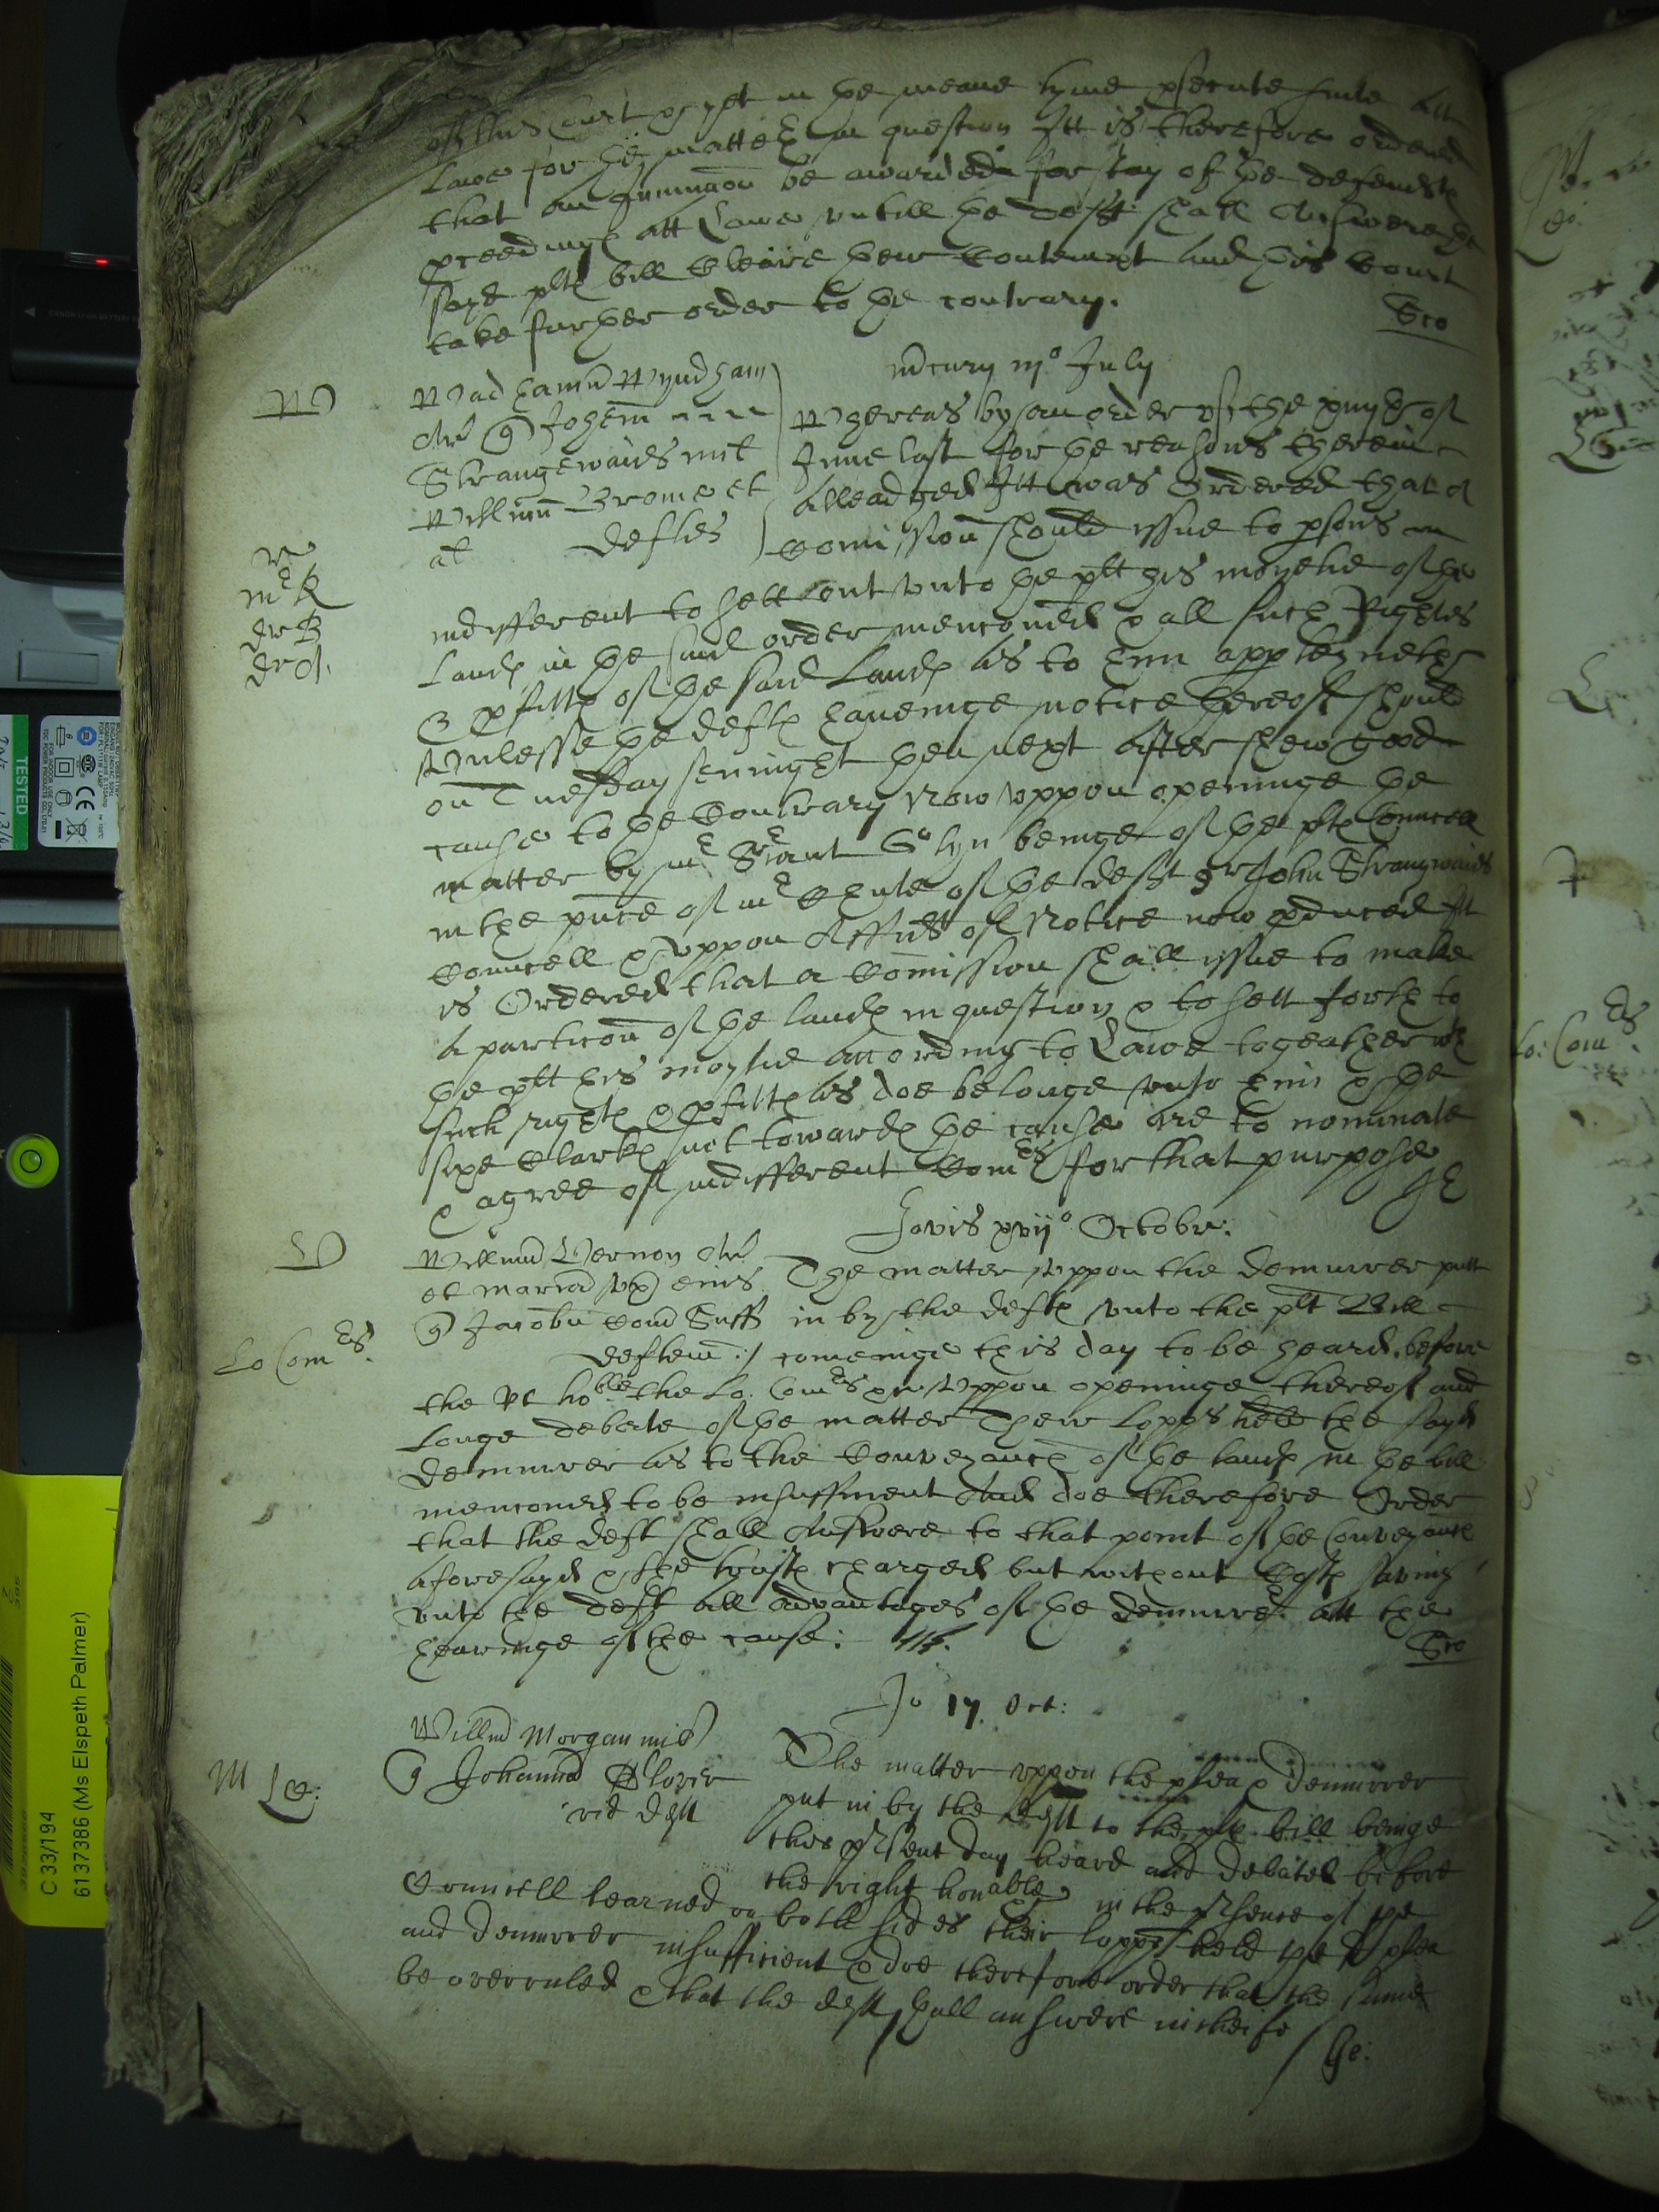 of this Court & yet in the meane tyme psecute suite att
Lawe for the matter in question Itt is therefore ordered
that an Iniunccon be awarded for stay of the defendts
pceedings att Lawe untill the deft shall Answere the
sayd plts bill cleare their Contempt And this Court
take further order to the contrary.
W
Wadhamu Wyndham
Ar q Johem
Strangewaies milt
Willmu Brome et
al deftes
Mercury iijo July
Whereas by an order of the of
June last for the reasons therein
Alleadged Itt was Ordered that a
Comission should issue to psons in
Mr R
indifferent to sett out unto the plt his moyetie of the
Lands in the said order menconed & all such Rights
& pfitts of the said Lands as to him apptayneth
Unlesse the defts haveinge notice thereof should
on Tuesday seavenight then next after shew good
cause to the Contrary Now uppon openinge the
matter by Mr Sriant Glyn beinge of the plts Councell
in the pnce of Mr Chute of the deft Sr John Strangwaies
Councell & uppon Affidt of Notice now pduced It
is Ordered that a Comission shall issue to make
A particon of the lands in question & to sett forth to
the plt his moytie according to Lawe togeather wth
such rights & pfitts as doe belonge unto him & the
sixe Clarks not towards the cause are to nominate
& agree of indifferent Comrs for that purpose
Jovis xvijo Octobr:
V
Willmu Vernon Ar
et Maria ux eius
q Jacobu Com Suff
deftem
Lo Comrs
The matter uppon the demurrer putt
in by the defts unto the plt Bill
comeinge this day to be heard before
the Rt hoble the Lo: Comrs uppon openinge thereof and
Longe debate of the matter Their Lopps held the sayd
Demurrer as to the Conveyance of the lands in the bill
menconed to be insufficient And doe therefore Order
that the deft shall Answere to that point of the Conveyance
aforesayd & the trusts charged but without Costs saving
unto the deft all advantages of the demurrer att the
hearinge of the cause:
Jo 17. Oct:
M
Willmu Morgan milt
q Johanna
vid deft
The matter uppon the plea & Demurrer
put in by the deft to the plts bill beinge
this present day heard and debated before
the right honable in the presence of the
Councell learned on both sides their Lopps held the plea
and Demurrer insufficient & doe therefore order that the same
be overruled & that the deft shall answere
TESTED
C 33/194
6137386 (Ms Elspeth Palmer)